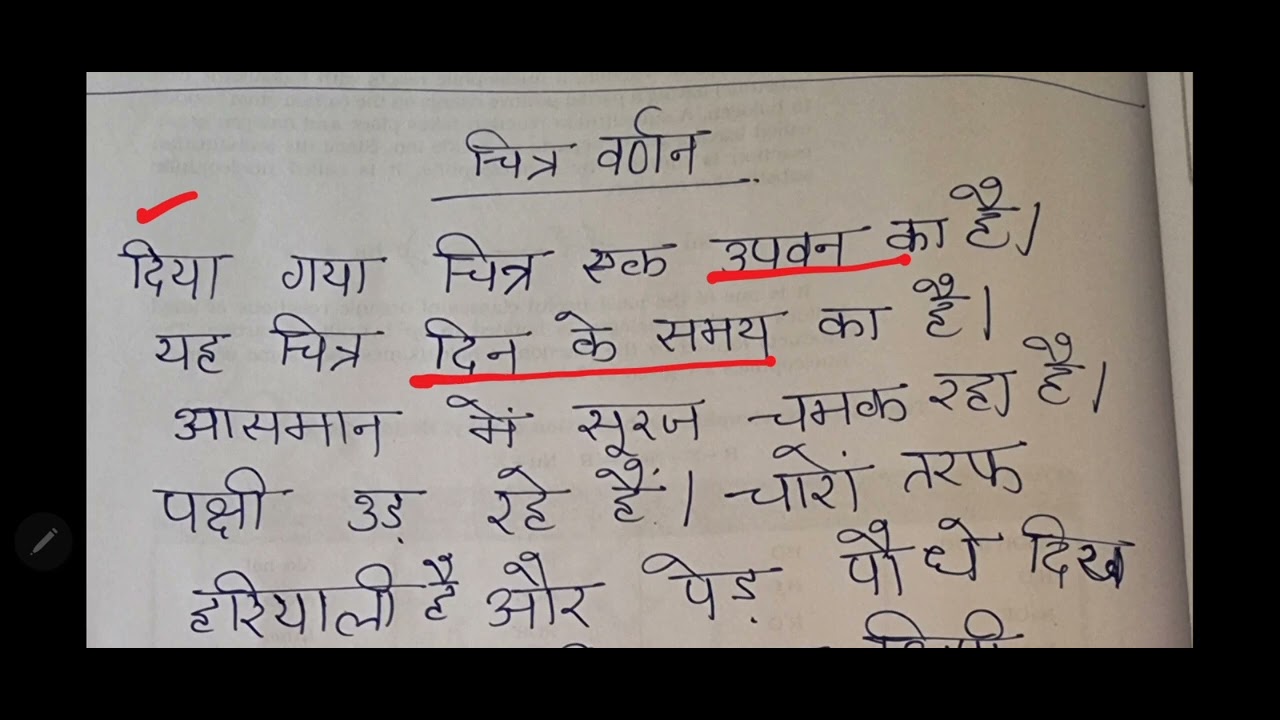 चित्र वर्णन
दिया गया चित्र एक उपवन का है।
यह चित्र दिन के समय का है।
आसमान में सूरज चमक रहा है।
पक्षी उड़ रहे हैं। चारों तरफ
हरियाली है और पेड़ पौधे दिख